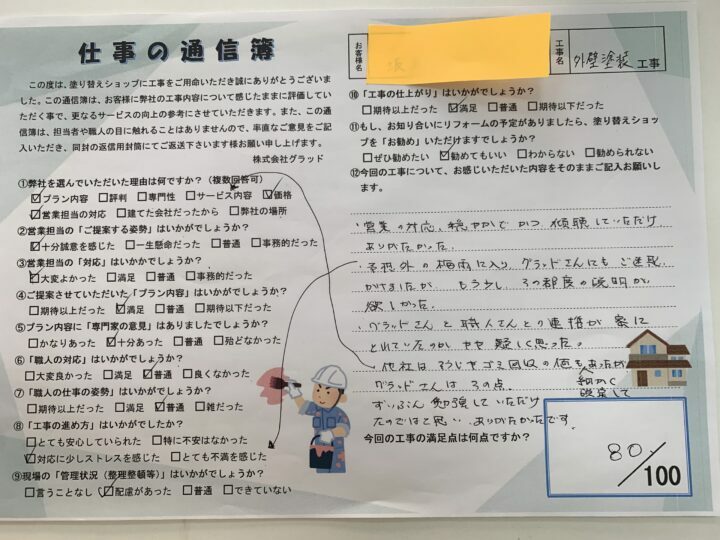 仕事の通信簿
この度は、塗り替えショップに工事をご用命いただき誠にありがとうございま
した。この通信簿は、お客様に弊社の工事内容について感じたままに評価してい
ただく事で、更なるサービスの向上の参考にさせていただきます。また、この通
信簿は、担当者や職人の目に触れることはありませんので、率直なご意見をご記
入いただき、同封の返信用封筒にてご返送下さいます様お願い申し上げます。
株式会社グラッド
①弊社を選んでいただいた理由は何ですか?(複数回答可)
☑プラン内容 □評判 □専門性 □サービス内容 ☑価格
☑営業担当の対応 □建てた会社だったから □弊社の場所
②営業担当の「ご提案する姿勢」はいかがでしょうか?
☑十分誠意を感じた □一生懸命だった □普通 □事務的だった
③営業担当の「対応」はいかかでしょうか?
☑大変よかった □満足 □普通 □事務的だった
④ご提案させていただいた「プラン内容」はいかがでしょうか?
□期待以上だった ☑満足 □普通 □期待以下だった
⑤プラン内容に「専門家の意見」はありましたでしょうか?
□かなりあった ☑十分あった □普通 □殆どなかった
⑥「職人の対応」はいかがでしょうか?
□大変良かった □満足 ☑普通 □良くなかった
⑦「職人の仕事の姿勢」はいかがでしょうか?
□期待以上だった □満足 ☑普通 □雑だった
⑧「工事の進め方」はいかがでしたか?
□とても安心していられた □特に不安はなかった
☑対応に少しストレスを感じた □とても不満を感じた
⑨現場の「管理状況(整理整頓等)」はいかがでしょうか?
□言うことなし ☑配慮があった □普通 □できていない
お客様名
工事名 外壁塗装 工事
⑩「工事の仕上がり」はいかがでしょうか?
□期待以上だった ☑満足 □普通 □期待以下だった
⑪もし、お知り合いにリフォームの予定がありましたら、塗り替えショッ
プを「お勧め」いただけますでしょうか?
□ぜひ勧めたい ☑勧めてもいい □わからない □勧められない
⑫今回の工事について、お感じいただいた内容をそのままご記入お願いし
ます。
・営業の対応、穏やかで かつ 傾聴していただけ
ありがたかった。
・予想外の梅雨に入り グラッドさんにも ご迷惑
がけましたが もう少し その都度の説明が
欲しかった。
・グラッドさんと職人さんとの連携が 密に
とれていたのか やや 疑しく思った。
・他社は そうじやゴミ回収の価もあったが
細かく
設定して
グラッドさんは その点
ずいぶん 勉強していただけ
たのではと思い ありがたかったです。
今回の工事の満足点は何点ですか?
80/100